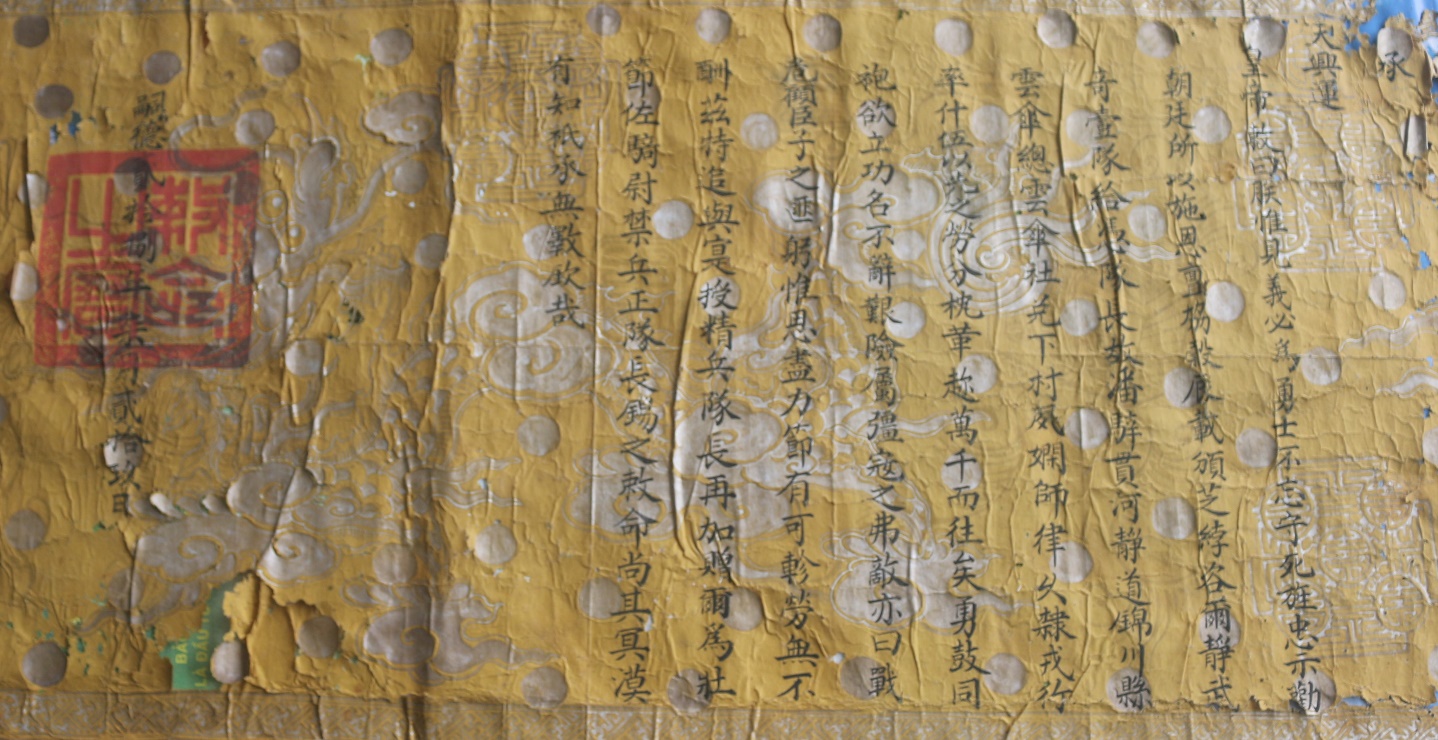 承
天興運
皇帝敕曰朕惟見義必為勇士不忘守死旌忠示勸
朝廷所以施恩載頒芝綍咨爾靜武
奇壹隊給隊長潘辥貫河靜道錦川縣
雲傘總雲傘社兌下村夙嫻師律久隸戎行
率什伍以從之勞分枕革趂萬千而往矣勇鼓同
袍欲立功名不辭艱險勇彊寇之弗敵亦曰戰
危顧臣子之匪躬惟思盡力節有可軫勞無不
酬茲特追與寔授精兵隊長再加贈爾為壯
節佐騎尉禁兵正隊長錫之敕命尚其冥漠
有知祇承無斁欽哉
嗣德貳拾年貳拾玖日
敕命之寶
BẢ
LA ĐẦU